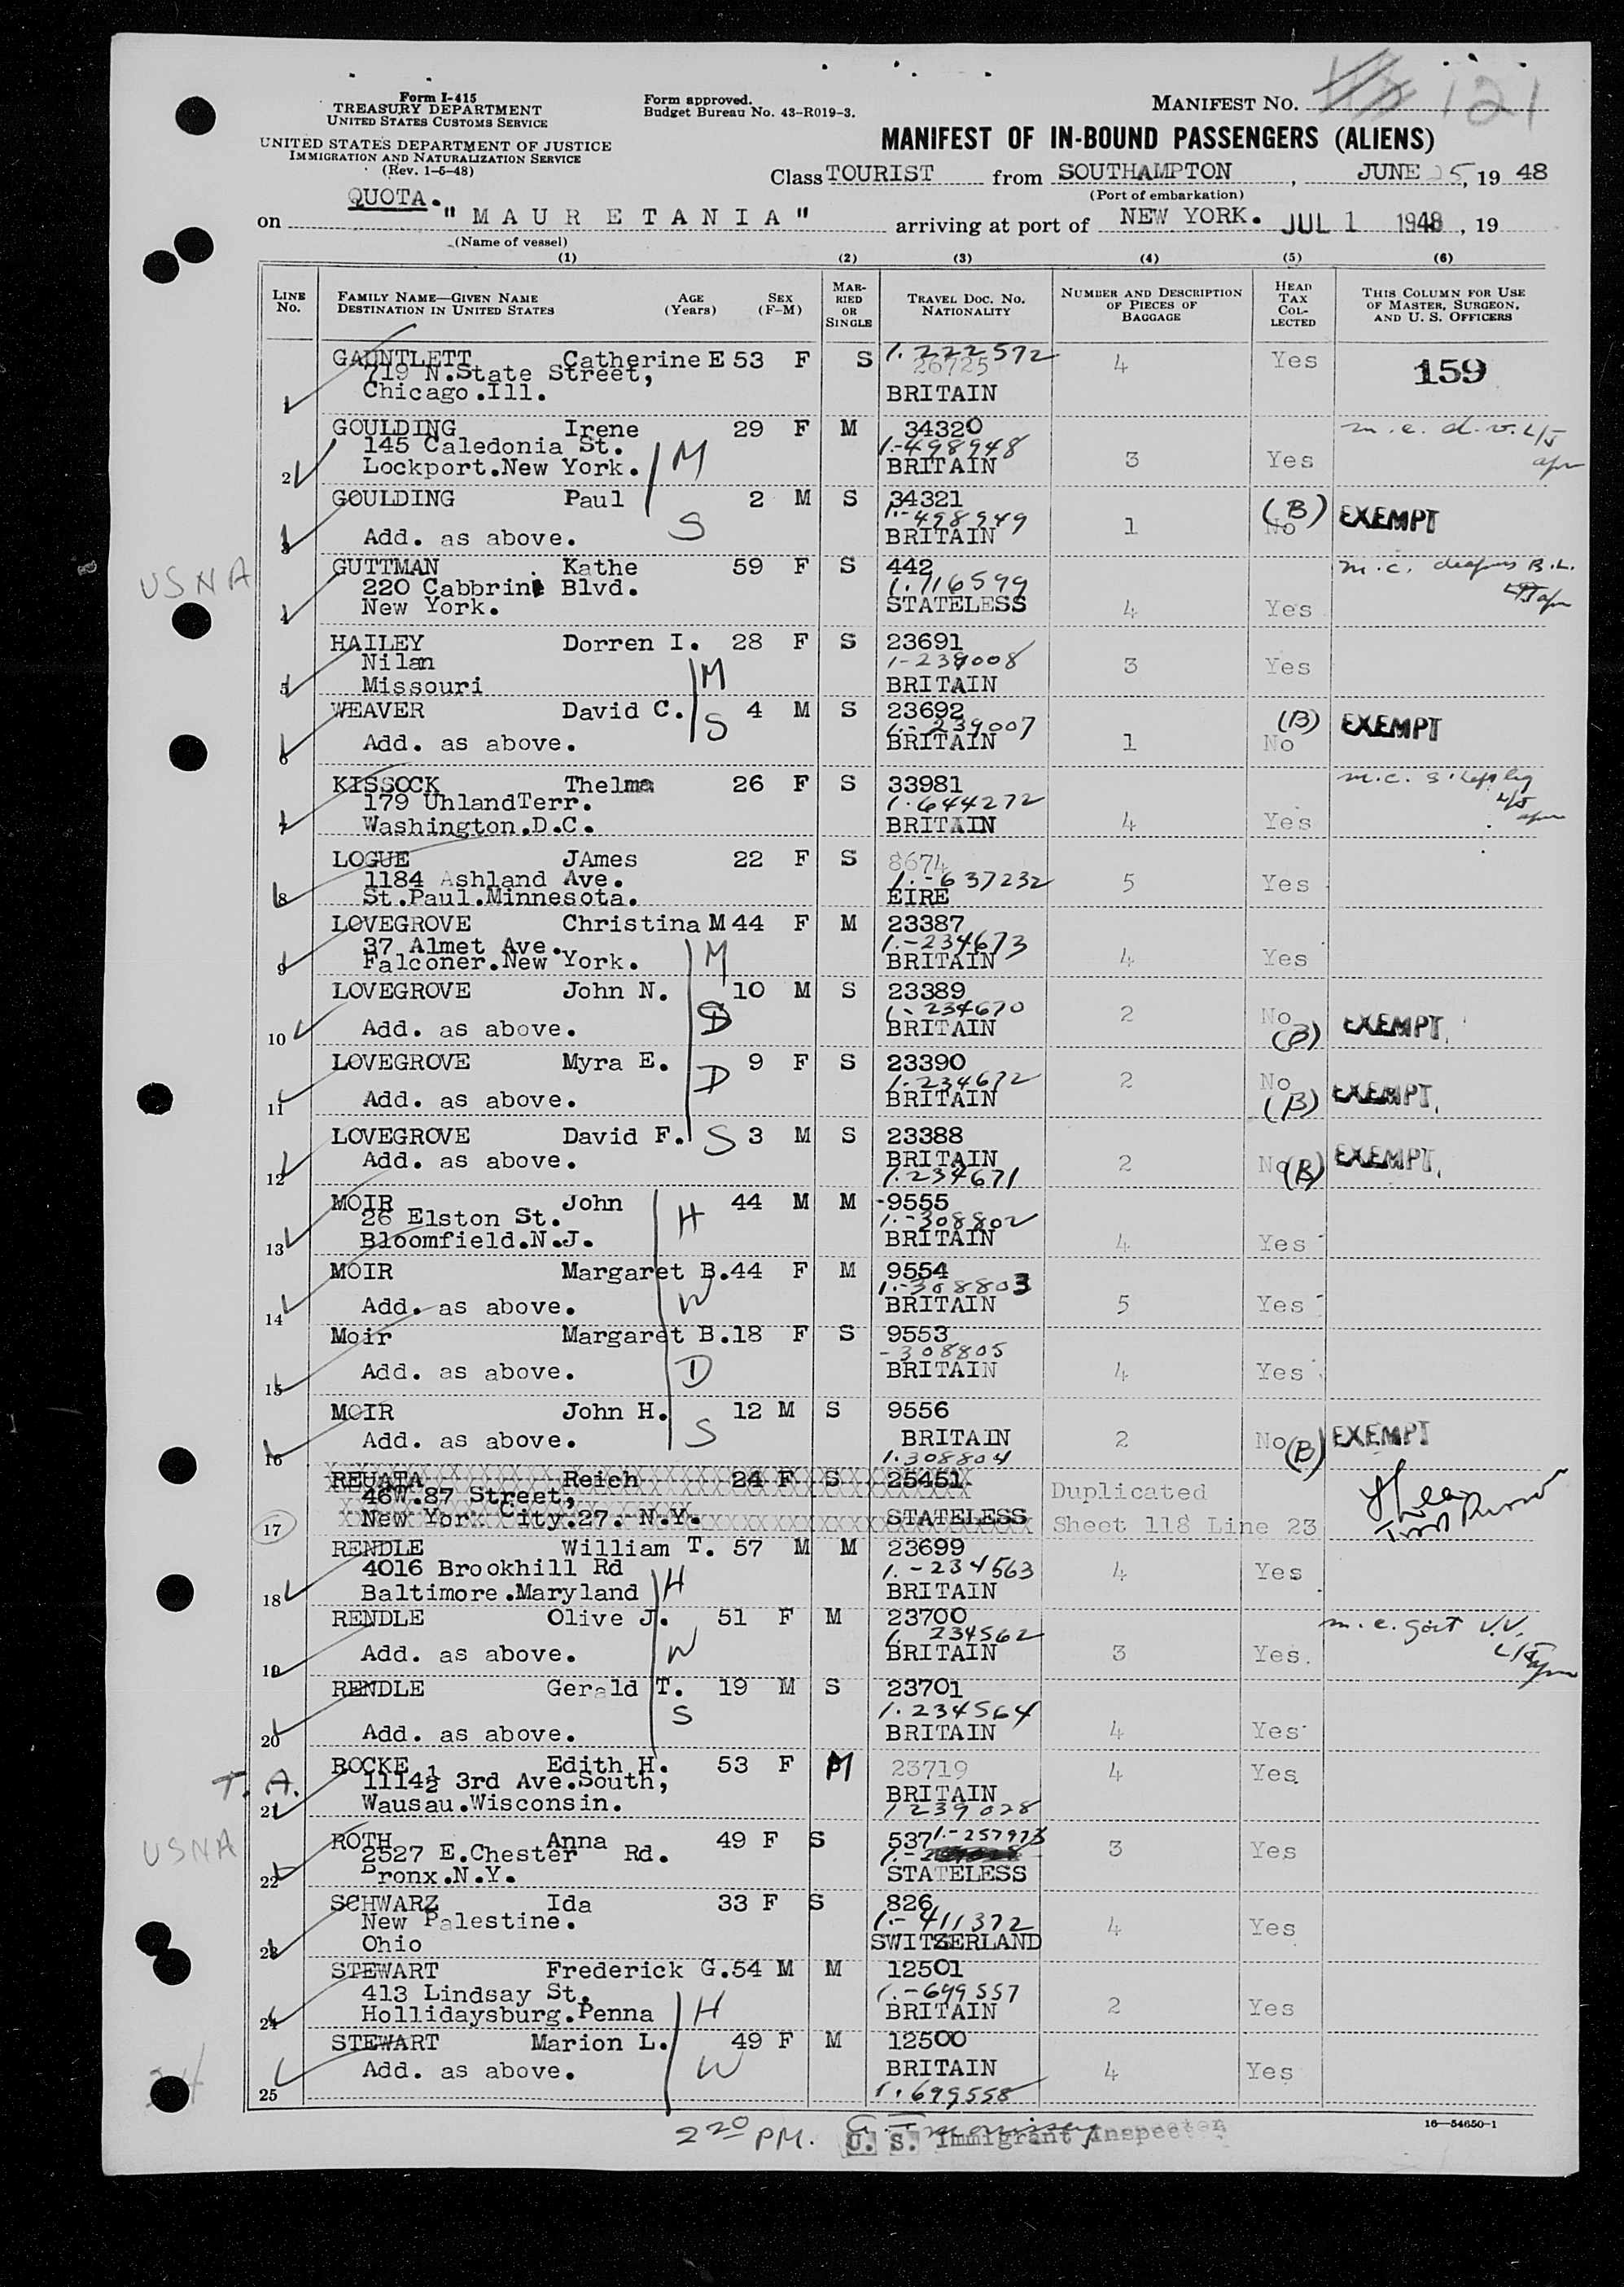 Form I-415
TREASURY DEPARTMENT
UNITED STATES CUSTOMS SERVICE
UNITED STATES DEPARTMENT OF JUSTICE
IMMIGRATION AND NATURALIZATION SERVICE
(Rev. 1-5-48)
Form approved.
Budget Bureau No. 43-R019-3.
MANIFEST NO. 121
MANIFEST OF IN-BOUND PASSENGERS (ALIENS)
Class TOURIST from SOUTHAMPTON, JUNE 25, 19 48
(Port of embarkation)
QUOTA.
on "MAURETANIA" arriving at port of NEW YORK. JUL 1 1948, 19
(Name of vessel)
(1) (2) (3) (4) (5) (6)
LINE No. FAMILY NAME—GIVEN NAME DESTINATION IN UNITED STATES AGE (Years) SEX (F-M) MARRIED OR SINGLE TRAVEL DOC. NO. NATIONALITY NUMBER AND DESCRIPTION OF PIECES OF BAGGAGE HEAD TAX COLLECTED THIS COLUMN FOR USE OF MASTER, SURGEON, AND U. S. OFFICERS
GAUNTLETT Catherine E 53 F S 1.222572
26725 4 Yes 159
719 N.State Street,
1 Chicago.Ill. BRITAIN
GOULDING Irene 29 F M 34320 m.c.
145 Caledonia St. 1-498948
2 Lockport.New York. M BRITAIN 3 Yes
GOULDING Paul 2 M S 34321 (B) EXEMPT
1-498949
3 Add. as above. S BRITAIN 1 No
USNA GUTTMAN Kathe 59 F S 442 m.c.
220 Cabbrine Blvd. 1.716599
4 New York. STATELESS 4 Yes
HAILEY Dorren I. 28 F S 23691
Nilan 1-239008 3 Yes
5 Missouri M BRITAIN
WEAVER David C. S 4 M S 23692 (B) EXEMPT
1-239007
6 Add. as above. BRITAIN 1 No
KISSOCK Thelma 26 F S 33981 m.c.
179 UhlandTerr. 1.644272
7 Washington.D.C. BRITAIN 4 Yes
LOGUE JAmes 22 F S 8674
1184 Ashland Ave. 1.-637232 5 Yes
8 St.Paul.Minnesota. EIRE
LOVEGROVE Christina M 44 F M 23387
37 Almet Ave. 1.-234673
9 Falconer.New York. M BRITAIN 4 Yes
LOVEGROVE John N. 10 M S 23389
1-234670 2 No
10 Add. as above. S BRITAIN (B) EXEMPT
LOVEGROVE Myra E. 9 F S 23390
D 1.234672 2 No
11 Add. as above. BRITAIN (B) EXEMPT
LOVEGROVE David F. S 3 M S 23388
Add. as above. BRITAIN 2 No (B) EXEMPT
12 1.234671
MOIR John 44 M M -9555
26 Elston St. H 1.-308802
13 Bloomfield.N.J. BRITAIN 4 Yes
MOIR Margaret B. 44 F M 9554
W 1.-308803
14 Add. as above. BRITAIN 5 Yes
Moir Margaret B. 18 F S 9553
-308805
15 Add. as above. D BRITAIN 4 Yes
MOIR John H. 12 M S 9556
Add. as above. S BRITAIN 2 No (B) EXEMPT
16 1.308804
REUATA Reich 24 F S 25451
46W.87 Street, Duplicated
17 New York City.27. N.Y. STATELESS Sheet 118 Line 23
RENDLE William T. 57 M M 23699
4016 Brookhill Rd 1.-234563 4 Yes
18 Baltimore.Maryland H BRITAIN
RENDLE Olive J. 51 F M 23700 m.c.
1. 234562
19 Add. as above. W BRITAIN 3 Yes.
RENDLE Gerald T. 19 M S 23701
S 1.234564
20 Add. as above. BRITAIN 4 Yes
T.A. ROCKE Edith H. 53 F M 23719 4 Yes
1114½ 3rd Ave.South, BRITAIN
21 Wausau.Wisconsin. 1 239028
USNA ROTH Anna 49 F S 537 1.-257973
2527 E.Chester Rd. 3 Yes
22 Bronx.N.Y. STATELESS
SCHWARZ Ida 33 F S 826
New Palestine. 1.-411372 4 Yes
23 Ohio SWITZERLAND
STEWART Frederick G. 54 M M 12501
413 Lindsay St. 1.-699557
24 Hollidaysburg.Penna H BRITAIN 2 Yes
STEWART Marion L. 49 F M 12500
Add. as above. W BRITAIN 4 Yes
25 1.699558
24
2 20 PM. U. S. Immigrant Inspector
16—54650-1